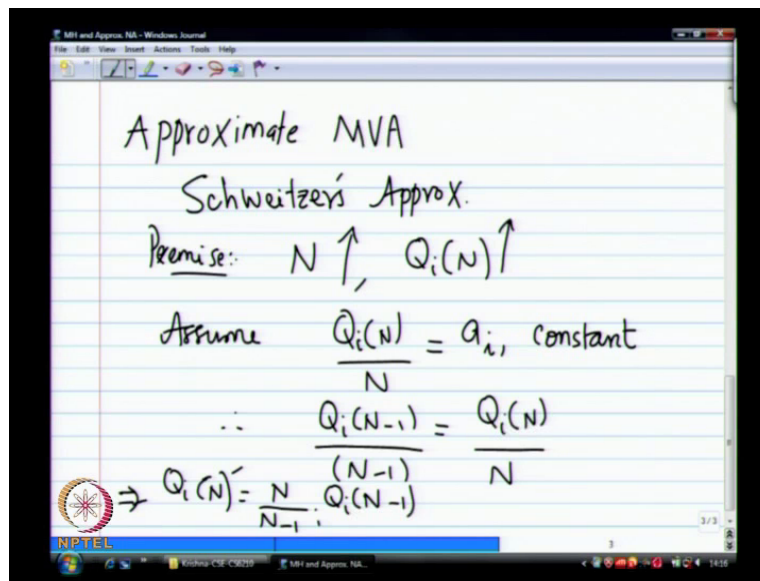 MH and Approx. NA - Windows Journal
File Edit View Insert Actions Tools Help
Approximate MVA
Schweitzer's Approx.
Premise: N ↑, Qi(N) ↑
Assume Qi(N)/N = ai, constant
∴ Qi(N-1)/(N-1) = Qi(N)/N
⇒ Qi(N) = N/N-1 . Qi(N-1)
3/3
NPTEL
3
Krishna-CSE-CS6210 MH and Approx. NA... 14:16